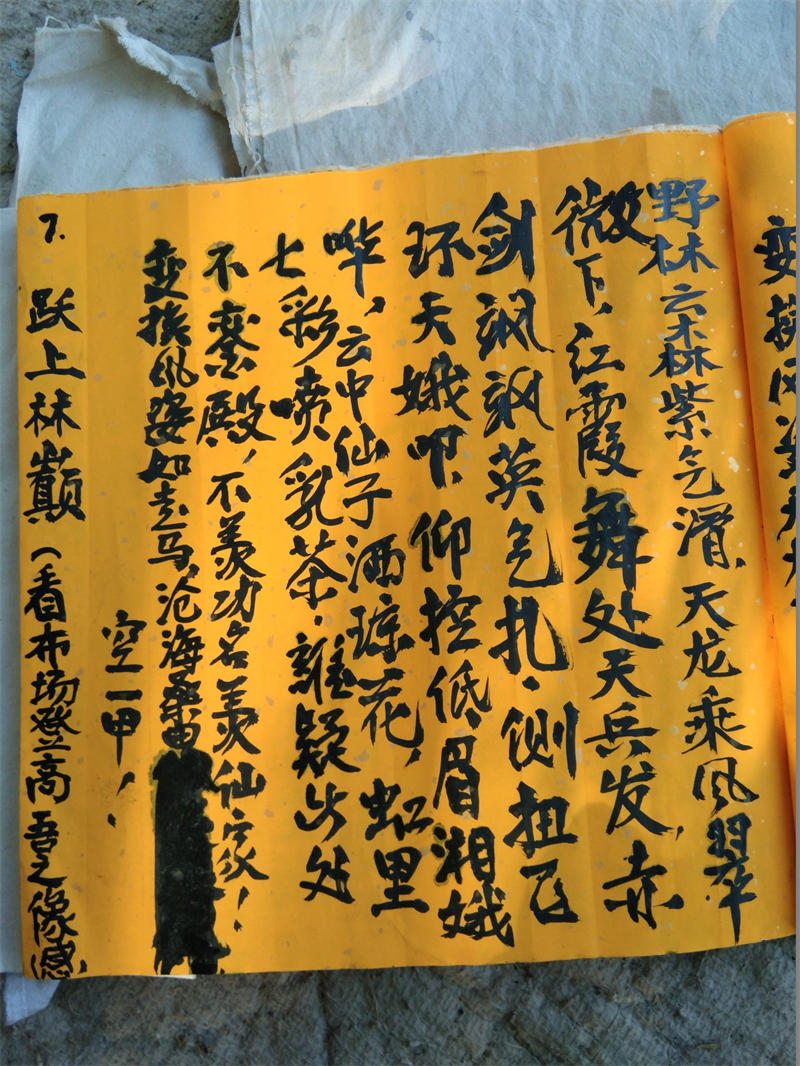 变换风姿
野林云森紫气滑,天龙乘风翠
微下,红霞舞处天兵发,赤
剑飒飒英气扎,侧扭飞
环天娥叩,仰控低眉湘娥
哗,云中仙子洒琼花,虹里
七彩喷乳茶,谁疑此处
不銮殿,不羡功名羡仙家!
变换风姿如走马,沧海桑田
空一甲!
7. 跃上林巅(看布场登高吾之像感